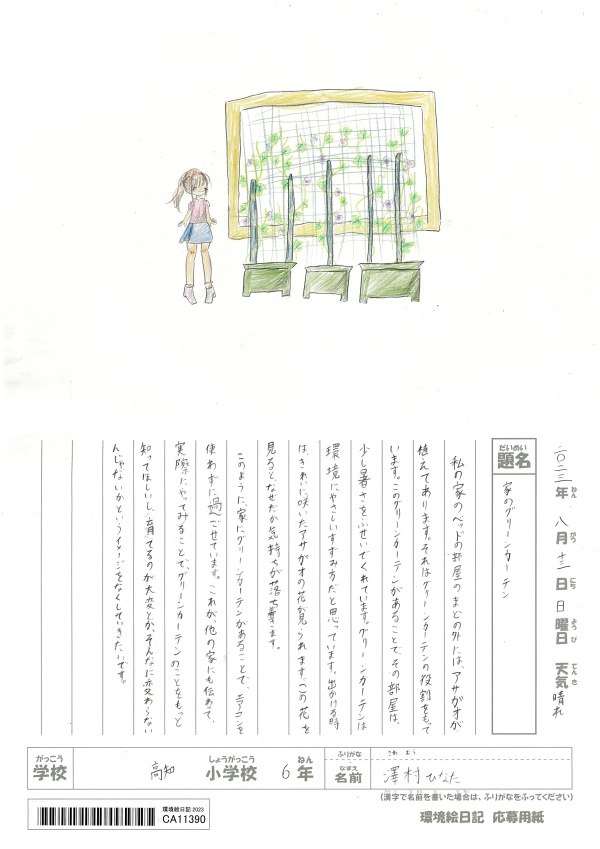 二〇二三年 八月 十三日 日曜日 天気 晴れ
ねん がつ にち ようび てんき
だいめい
題名
家のグリーンカーテン
私の家のベッドの部屋のまどの外には、アサガオが
植えてあります。それはグリーンカーテンの役割をもって
います。このグリーンカーテンがあることで、その部屋は、
少し暑さをふせいでくれています。グリーンカーテンは
環境にやさしいすずみ方だと思っています。出かける時
は、きれいに咲いたアサガオの花が見られます。この花を
見ると、なぜだか気持ちが落ち着きます。
このように、家にグリーンカーテンがあることで、エアコンを
使わずに過ごせています。これが、他の家にも伝わって、
実際にやってみることで、グリーンカーテンのことをもっと
知ってほしいし、育てるのが大変とか、そんなに変わらない
んじゃないかというイメージをなくしていきたいです。
がっこう
学校
高知
しょうがっこう
小学校
6
ねん
年
ふりがな
なまえ
名前
さわ むら
澤村 ひなた
(漢字で名前を書いた場合は、ふりがなをふってください)
環境絵日記 2023
CA11390
環境絵日記 応募用紙